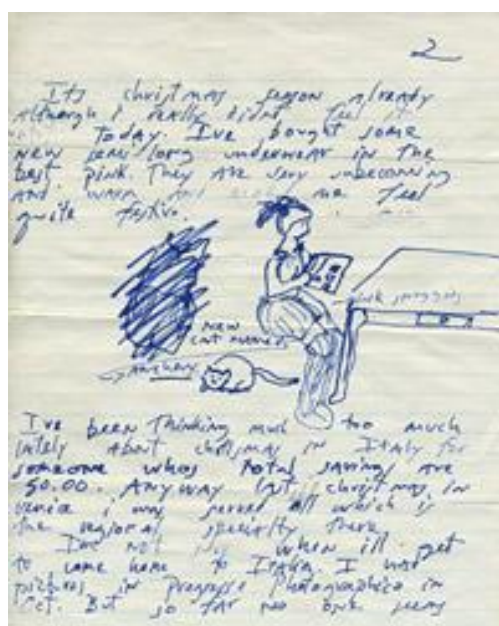 2
Its christmas season already
Although I really didnt feel it
Today. Ive bought some
new long underwear in the
best pink. They are very unbecoming
and warm and me feel
quite festive.
new
cat named
I've been Thinking much too much
lately about christmas in Italy for
someone whos total savings are
50.00. Anyway last christmas in
venice i was served eel which is
the regional specialty there
Im not when ill get
to come home to Italia. I had
pictures in Progresso Photographico in
Oct. But so far no one seems